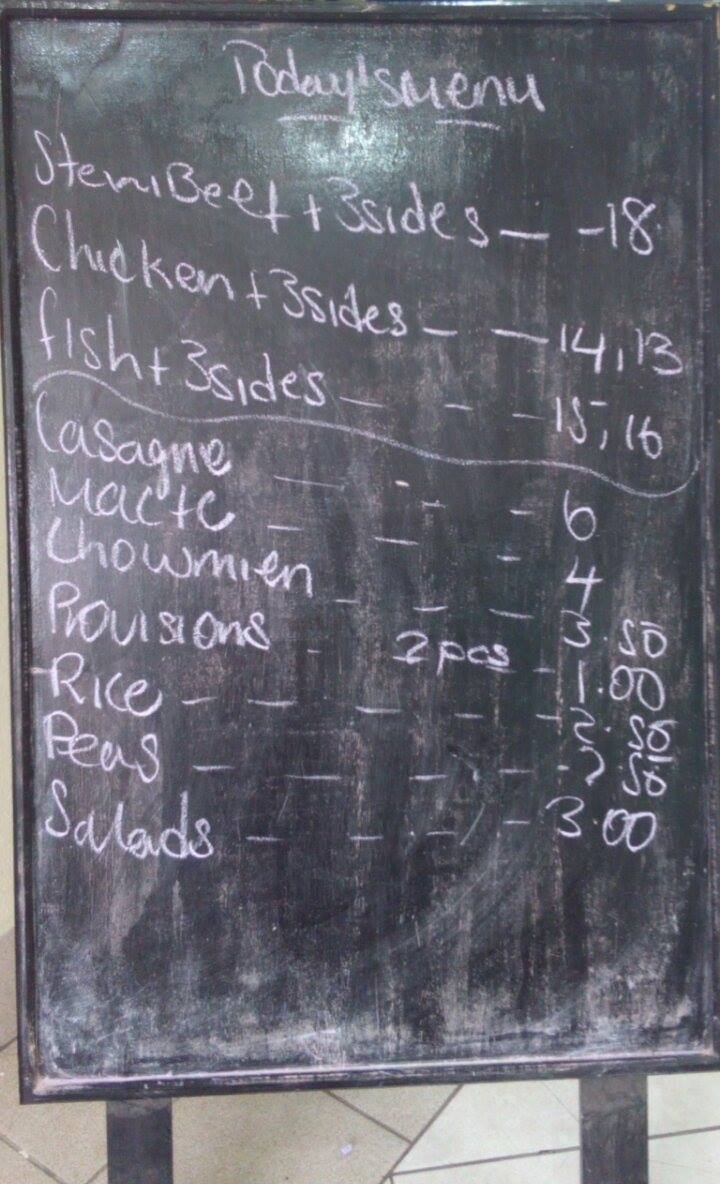 Today's Menu
Stew Beef + 3 sides - - 18
Chicken + 3 sides - - 14, 13
fish + 3 sides - - - 15, 16
Lasagne - - - 6
Mac + C - - - 4
Chowmien - - - 3.50
Provisions - 2 pcs - 1.00
Rice - - - - - 2.50
Peas - - - - - 2.50
Salads - - - - 3.00